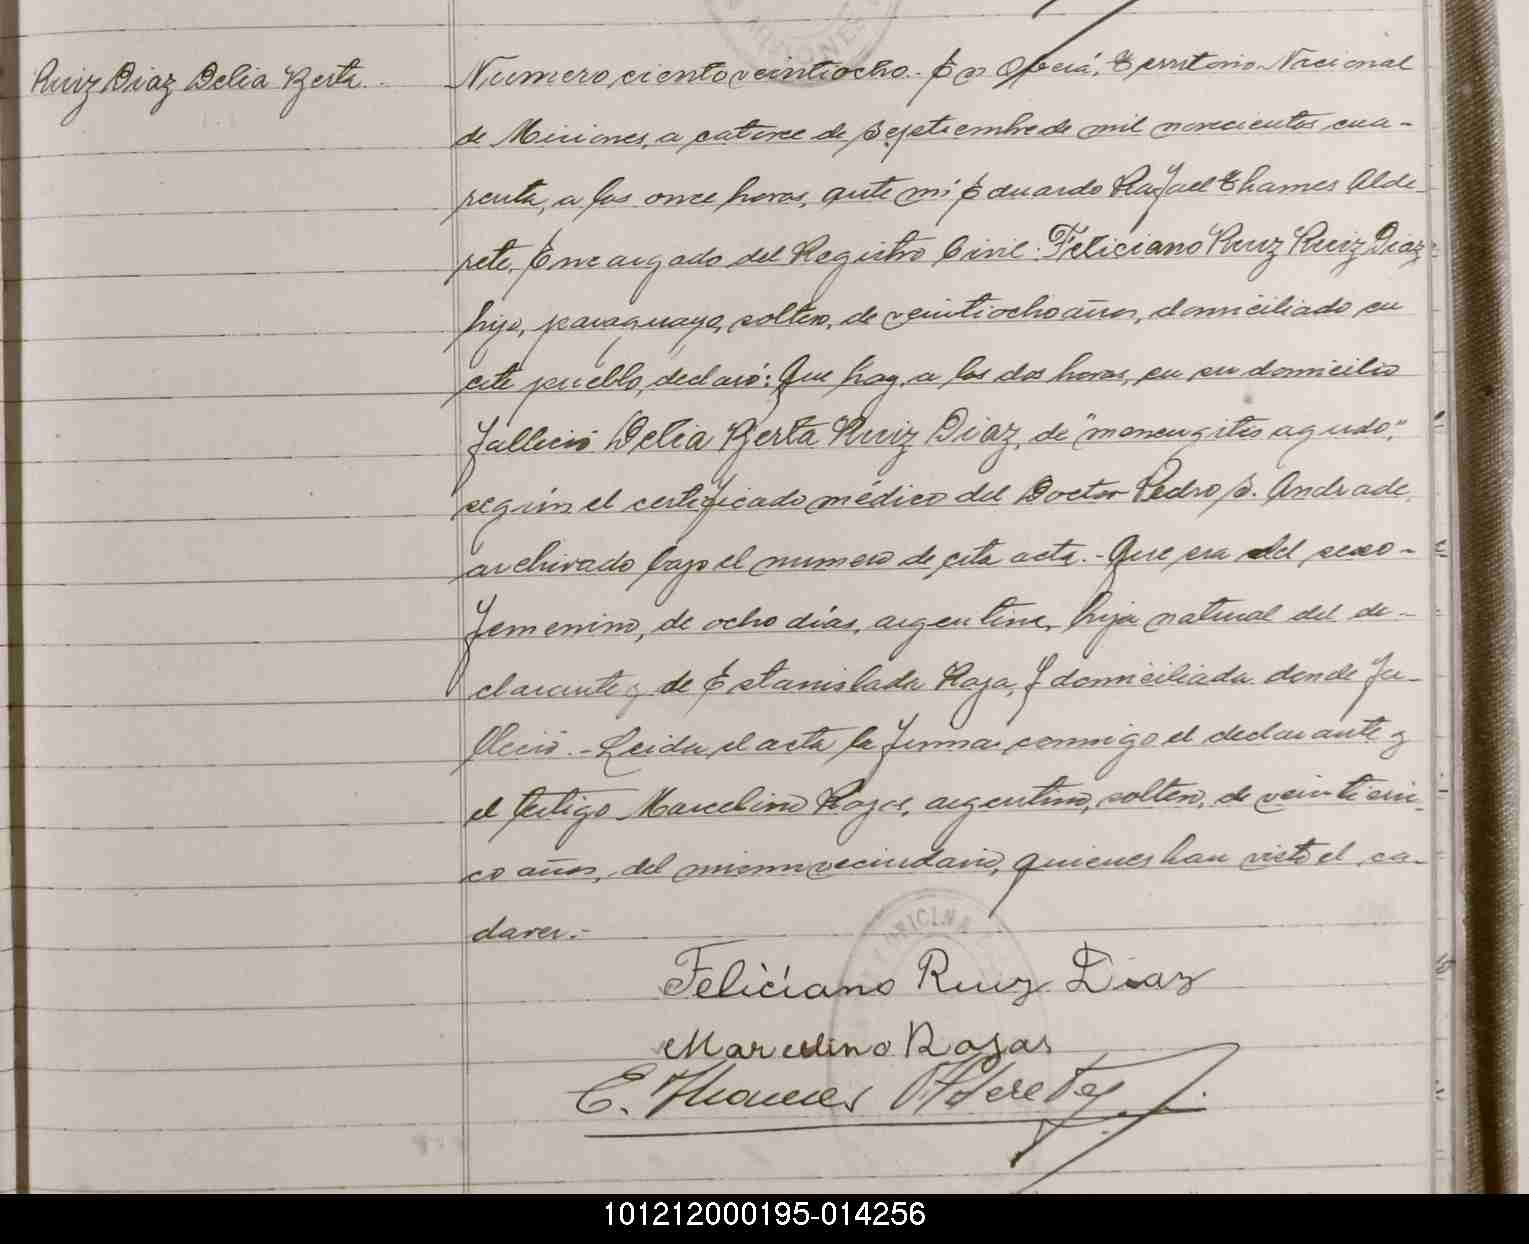 Ruiz Diaz Delia Berta.
Numero ciento veintiocho.- En Oberá, Territorio Nacional
de Misiones, a catorce de Septiembre de mil novecientos cua-
renta, a las once horas, ante mi Eduardo Rafael Thames Alde-
rete, Encargado del Registro Civil: Feliciano Ruiz Ruiz Diaz
hijo, paraguayo, soltero, de veintiocho años, domiciliado en
este pueblo, declaró: Que hoy, a las dos horas, en su domicilio
falleció Delia Berta Ruiz Diaz, de "meneugitis agudo",
según el certificado médico del Doctor Pedro S. Andrade,
archivado bajo el numero de esta acta.- Que era del sexo-
femenino, de ocho días, argentina, hija natural del de-
clarante y de Estanislada Roja, y domiciliada donde fa-
lleció.- Leida el acta la firma conmigo el declarante y
el testigo Marcelino Rojas, argentino, soltero, de veinticin-
co años, del mismo vecindario, quienes han visto el ca-
daver.-
OFICINA
Feliciano Ruiz Diaz
Marcelino Rojas
E. Thames Alderete
101212000195-014256